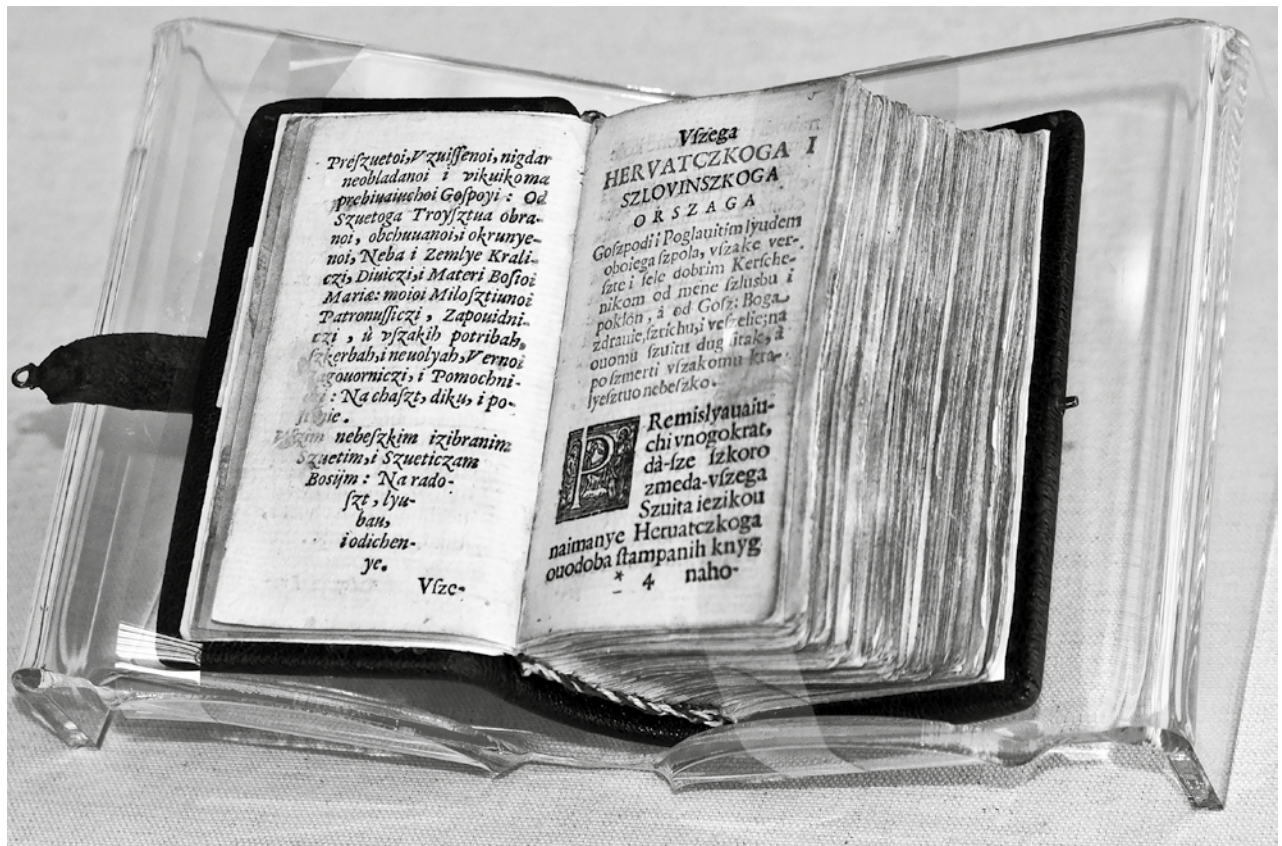 Preſzuetoi, Vzuiſſenoi, nigdar
neobladanoi i vikuikoma
prebiuaiuchoi Goſpoyi : Od
Szuetoga Troyſztua obra-
noi, obchuuanoi, i okrunye-
noi, Neba i Zemlye Krali-
czi, Diuiczi, i Materi Boſioi
Mariæ: moioi Miloſztiunoi
Patronuſſiczi , Zapouidni-
czi , ù vſzakih potribah,
ſzkerbah, i neuolyah, Vernoi
agouorniczi, i Pomochni-
: Na chaſzt, diku, i po-
nebeſzkim izibranim
Szuetim, i Szueticzam
Bosijm : Na rado-
ſzt , lyu-
bau,
i odichen-
ye.
Vſze-
Vſzega
HERVATCZKOGA I
SZLOVINSZKOGA
ORSZAGA
Goſzpodi i Poglauitim lyudem
oboiega ſzpola, vſzake ver-
ſzte i ſele dobrim Kerſche-
nikom od mene ſzlusbu i
poklon , à od Goſz: Boga
zdrauie, ſzrichu, i veſzelie; na
ouomu ſzuitu dug itak, à
po ſzmerti vſzakomu kra-
lyeſztuo nebeſzko.
PRemislyauaiu-
chi vnogokrat,
dà-ſze ſzkoro
zmeda-vſzega
Szuita iezikou
naimanye Heruatczkoga
ouodoba ſtampanih knyg
* 4 naho-